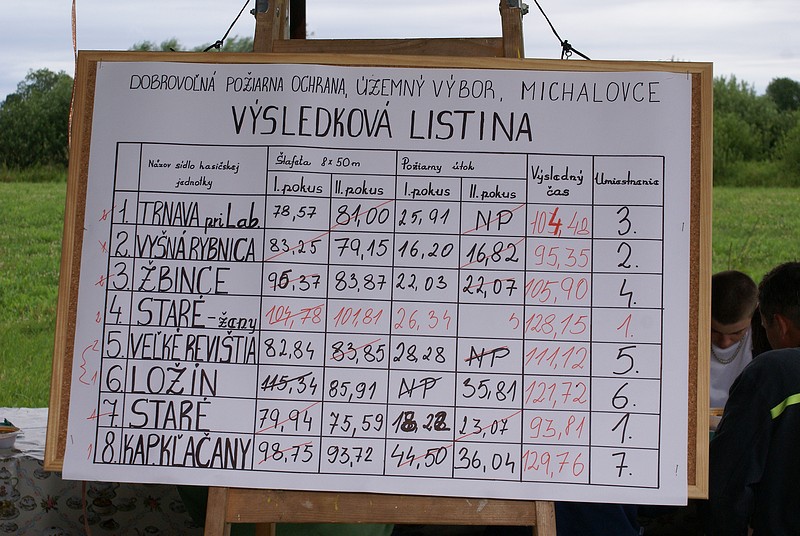 DOBROVOĽNÁ POŽIARNA OCHRANA, ÚZEMNÝ VÝBOR, MICHALOVCE
VÝSLEDKOVÁ LISTINA
Názov sídlo hasičskej jednotky Štafeta 8x50m Požiarny útok Výsledný čas Umiestnenie
I. pokus II. pokus I. pokus II. pokus
1. TRNAVA pri Lab. 78,57 81,00 25,91 NP 104,48 3.
2. VYŠNÁ RYBNICA 83,25 79,15 16,20 16,82 95,35 2.
3. ŽBINCE 95,37 83,87 22,03 22,07 105,90 4.
4. STARÉ - žany 104,78 101,81 26,34 128,15 1.
5. VEĽKÉ REVIŠTIA 82,84 83,85 28,28 NP 111,12 5.
6. LOŽÍN 115,34 85,91 NP 35,81 121,72 6.
7. STARÉ 79,94 75,59 18,22 23,07 93,81 1.
8. KAP. KĽAČANY 98,75 93,72 44,50 36,04 129,76 7.